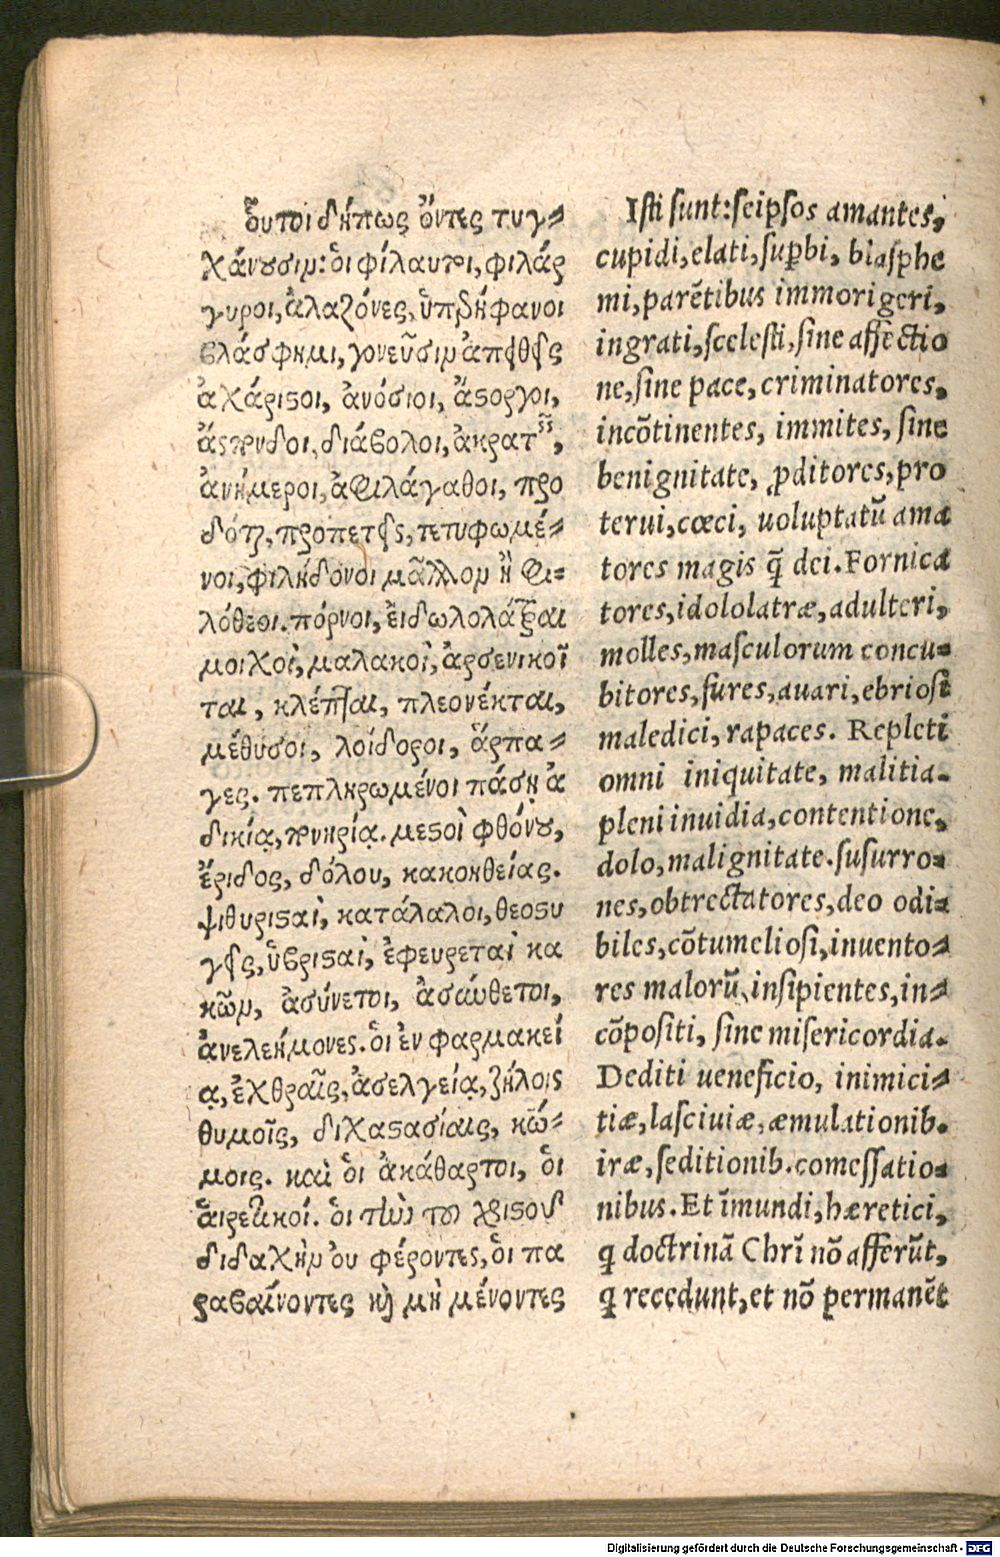 ὅυτοι δήπως ὄντες τυγ-
χάνουσιν: ὁι φίλαυτοι, φιλάρ
γυροι, ἀλαζόνες, ὑπερήφανοι
βλάσφημι, γονεῦσιν ἀπειθεῖς
ἀχάριστοι, ἀνόσιοι, ἄστοργοι,
ἄσπονδοι, διάβολοι, ἀκρατεῖς,
ἀνήμεροι, ἀφιλάγαθοι, προ
δόται, προπετεῖς, τετυφωμέ-
νοι, φιλήδονοι μᾶλλον ἢ φι-
λόθεοι. πόρνοι, ἐιδωλολάτραι
μοιχοὶ, μαλακοὶ, ἀρσενικοῖ
ται, κλέπται, πλεονέκται,
μέθυσοι, λοίδοροι, ἅρπα-
γες. πεπληρωμένοι πάσῃ ἀ
δικίᾳ, πονηρίᾳ. μεστοὶ φθόνου,
ἔριδος, δόλου, κακοηθείας.
ψιθυρισταὶ, κατάλαλοι, θεοστυ
γεῖς, ὑβρισταὶ, ἐφευρεταὶ κα
κῶν, ἀσύνετοι, ἀσύνθετοι,
ἀνελεήμονες. ὁι ἐν φαρμακεί
ᾳ, ἐχθραῖς, ἀσελγείᾳ, ζήλοις
θυμοῖς, διχαστασίαις, κώ-
μοις. καὶ ὁι ἀκάθαρτοι, ὁι
ἁιρετικοί. ὁι τὴν τοῦ χριστοῦ
διδαχὴν ὀυ φέροντες, ὁι πα
ραβαίνοντες καὶ μὴ μένοντες
Isti sunt: seipsos amantes,
cupidi, elati, suꝑbi, blasphe
mi, parẽtibus immorigeri,
ingrati, scelesti, sine affectio
ne, sine pace, criminatores,
incõtinentes, immites, sine
benignitate, ꝓditores, pro
terui, cœci, uoluptatũ ama
tores magis q̃ dei. Fornica
tores, idololatræ, adulteri,
molles, masculorum concu-
bitores, fures, auari, ebriosi
maledici, rapaces. Repleti
omni iniquitate, malitia.
pleni inuidia, contentione,
dolo, malignitate. susurro-
nes, obtrectatores, deo odi-
biles, cõtumeliosi, inuento-
res malorũ, insipientes, in-
cõpositi, sine misericordia.
Dediti ueneficio, inimici-
tiæ, lasciuiæ, æmulationib.
iræ, seditionib. comessatio-
nibus. Et ĩmundi, hæretici,
q doctrinã Chrĩ nõ afferũt,
q recedunt, et nõ permanẽt
Digitalisierung gefördert durch die Deutsche Forschungsgemeinschaft - DFG